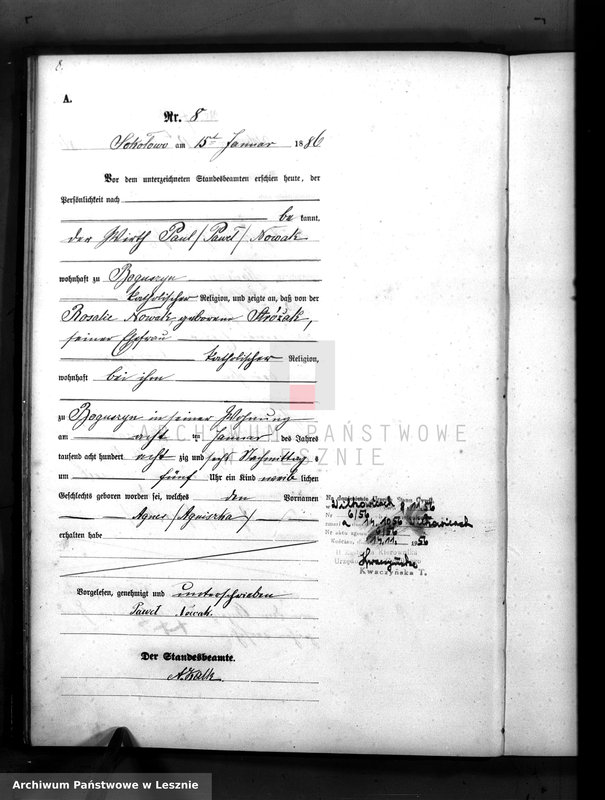 8.
A.
Nr. 8
Sokołowo am 15t Januar 1886
Vor dem unterzeichneten Standesbeamten erschien heute, der
Persönlichkeit nach
be kannt,
der Wirth Paul /Paweł/ Nowak
wohnhaft zu Boguszyn
katholischer Religion, und zeigte an, daß von der
Rosalie Nowak geborene Stróżak,
seiner Ehefrau
katholischer Religion,
wohnhaft bei ihm
zu Boguszyn in seiner Wohnung
am acht ten Januar des Jahres
tausend acht hundert acht zig und sechs Nachmittag s
um fünf Uhr ein Kind weib lichen
Geschlechts geboren worden sei, welches den Vornamen
Agnes /Agniszka/
erhalten habe
Vorgelesen, genehmigt und unterschrieben
Paweł Nowak.
Der Standesbeamte.
ARCHIWUM PAŃSTWOWE
W LESZNIE
6/56
14.10 56
14.11. 1956
Kwaczyńska T.
Archiwum Państwowe w Lesznie